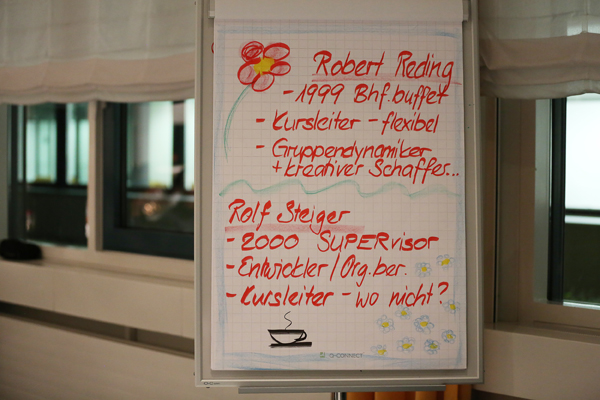 Robert Reding
- 1999 Bhf.buffet
- Kursleiter - flexibel
- Gruppendynamiker
+ kreativer Schaffer...
Rolf Steiger
- 2000 SUPERvisor
- Entwickler/Org.ber.
- Kursleiter - wo nicht?
Q-CONNECT